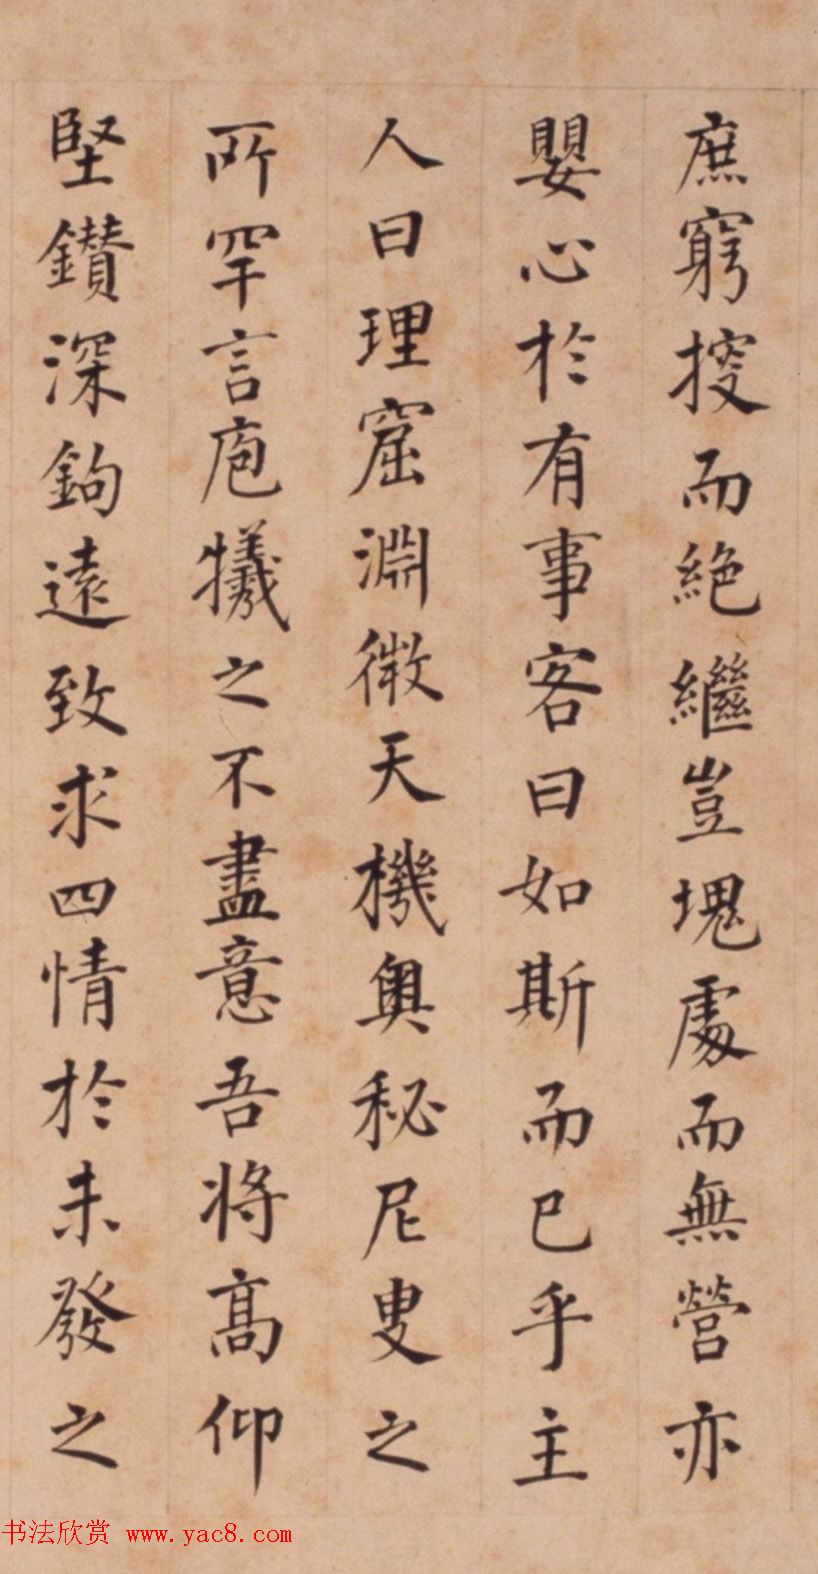 庶窮搜而絶繼豈塊處而無營亦
嬰心於有事客曰如斯而已乎主
人曰理窟淵微天機奥秘尼叟之
所罕言庖犧之不盡意吾將高仰
堅鑽深鉤遠致求四情於未發之
书法欣赏 www.yac8.com